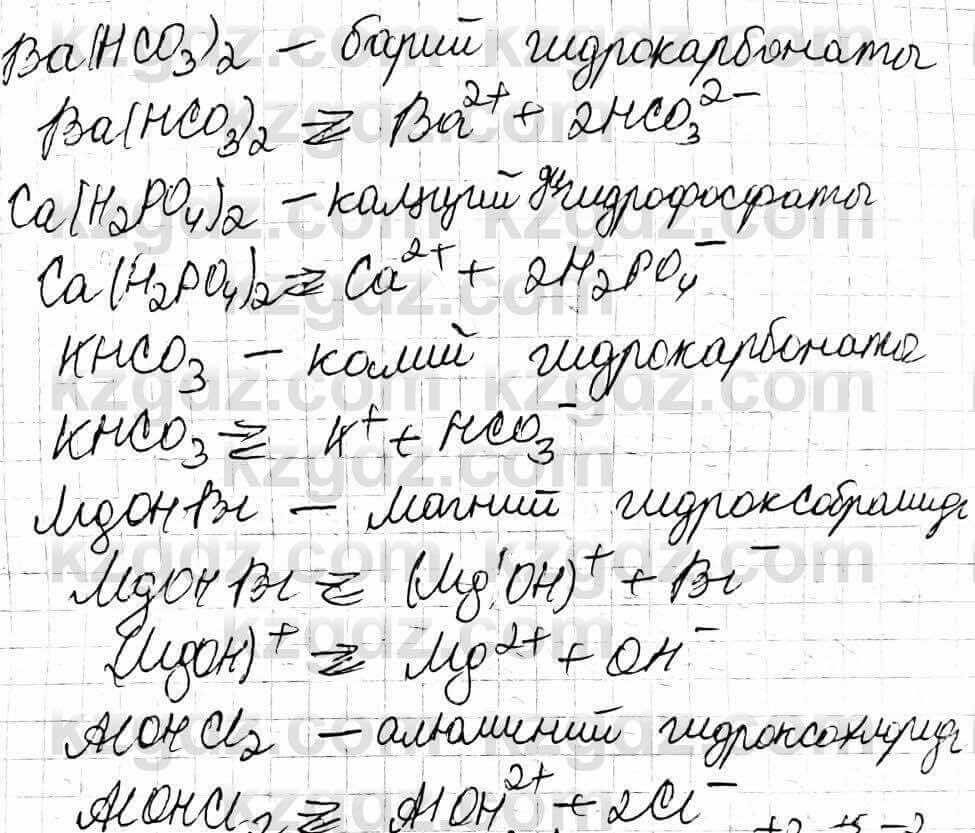 Ba(HCO₃)₂ – барий гидрокарбонаты
Ba(HCO₃)₂ ⇄ Ba²⁺ + 2HCO₃²⁻
Ca(H₂PO₄)₂ – калций дигидрофосфаты
Ca(H₂PO₄)₂ ⇄ Ca²⁺ + 2H₂PO₄⁻
KHCO₃ – калий гидрокарбонаты
KHCO₃ ⇄ K⁺ + HCO₃⁻
MgOHBr – магний гидроксобромиді
MgOHBr ⇄ (MgOH)⁺ + Br⁻
(MgOH)⁺ ⇄ Mg²⁺ + OH⁻
AlOHCl₂ – алюминий гидроксохлориді
AlOHCl₂ ⇄ AlOH²⁺ + 2Cl⁻
kzgdz.com